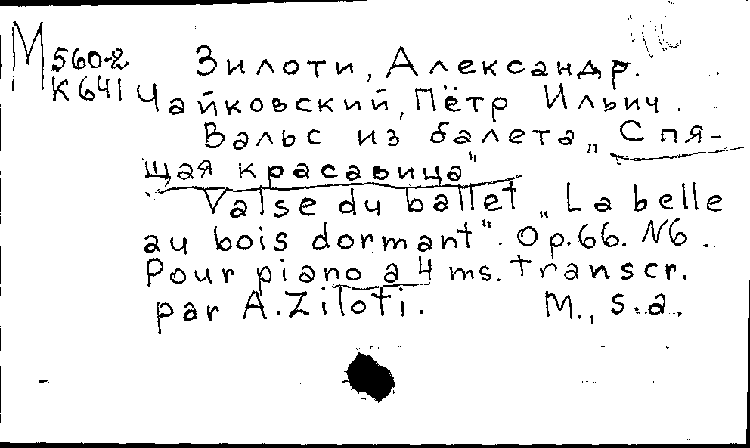 М 560-2 Зилоти, Александр.
К 641 Чайковский, Пётр Ильич.
Вальс из балета „Спя-
щая красавица"
Valse du ballet „La belle
au bois dormant". Op. 66. N6.
Pour piano a 4 ms. Transcr.
par A. Ziloti. M., s.a.